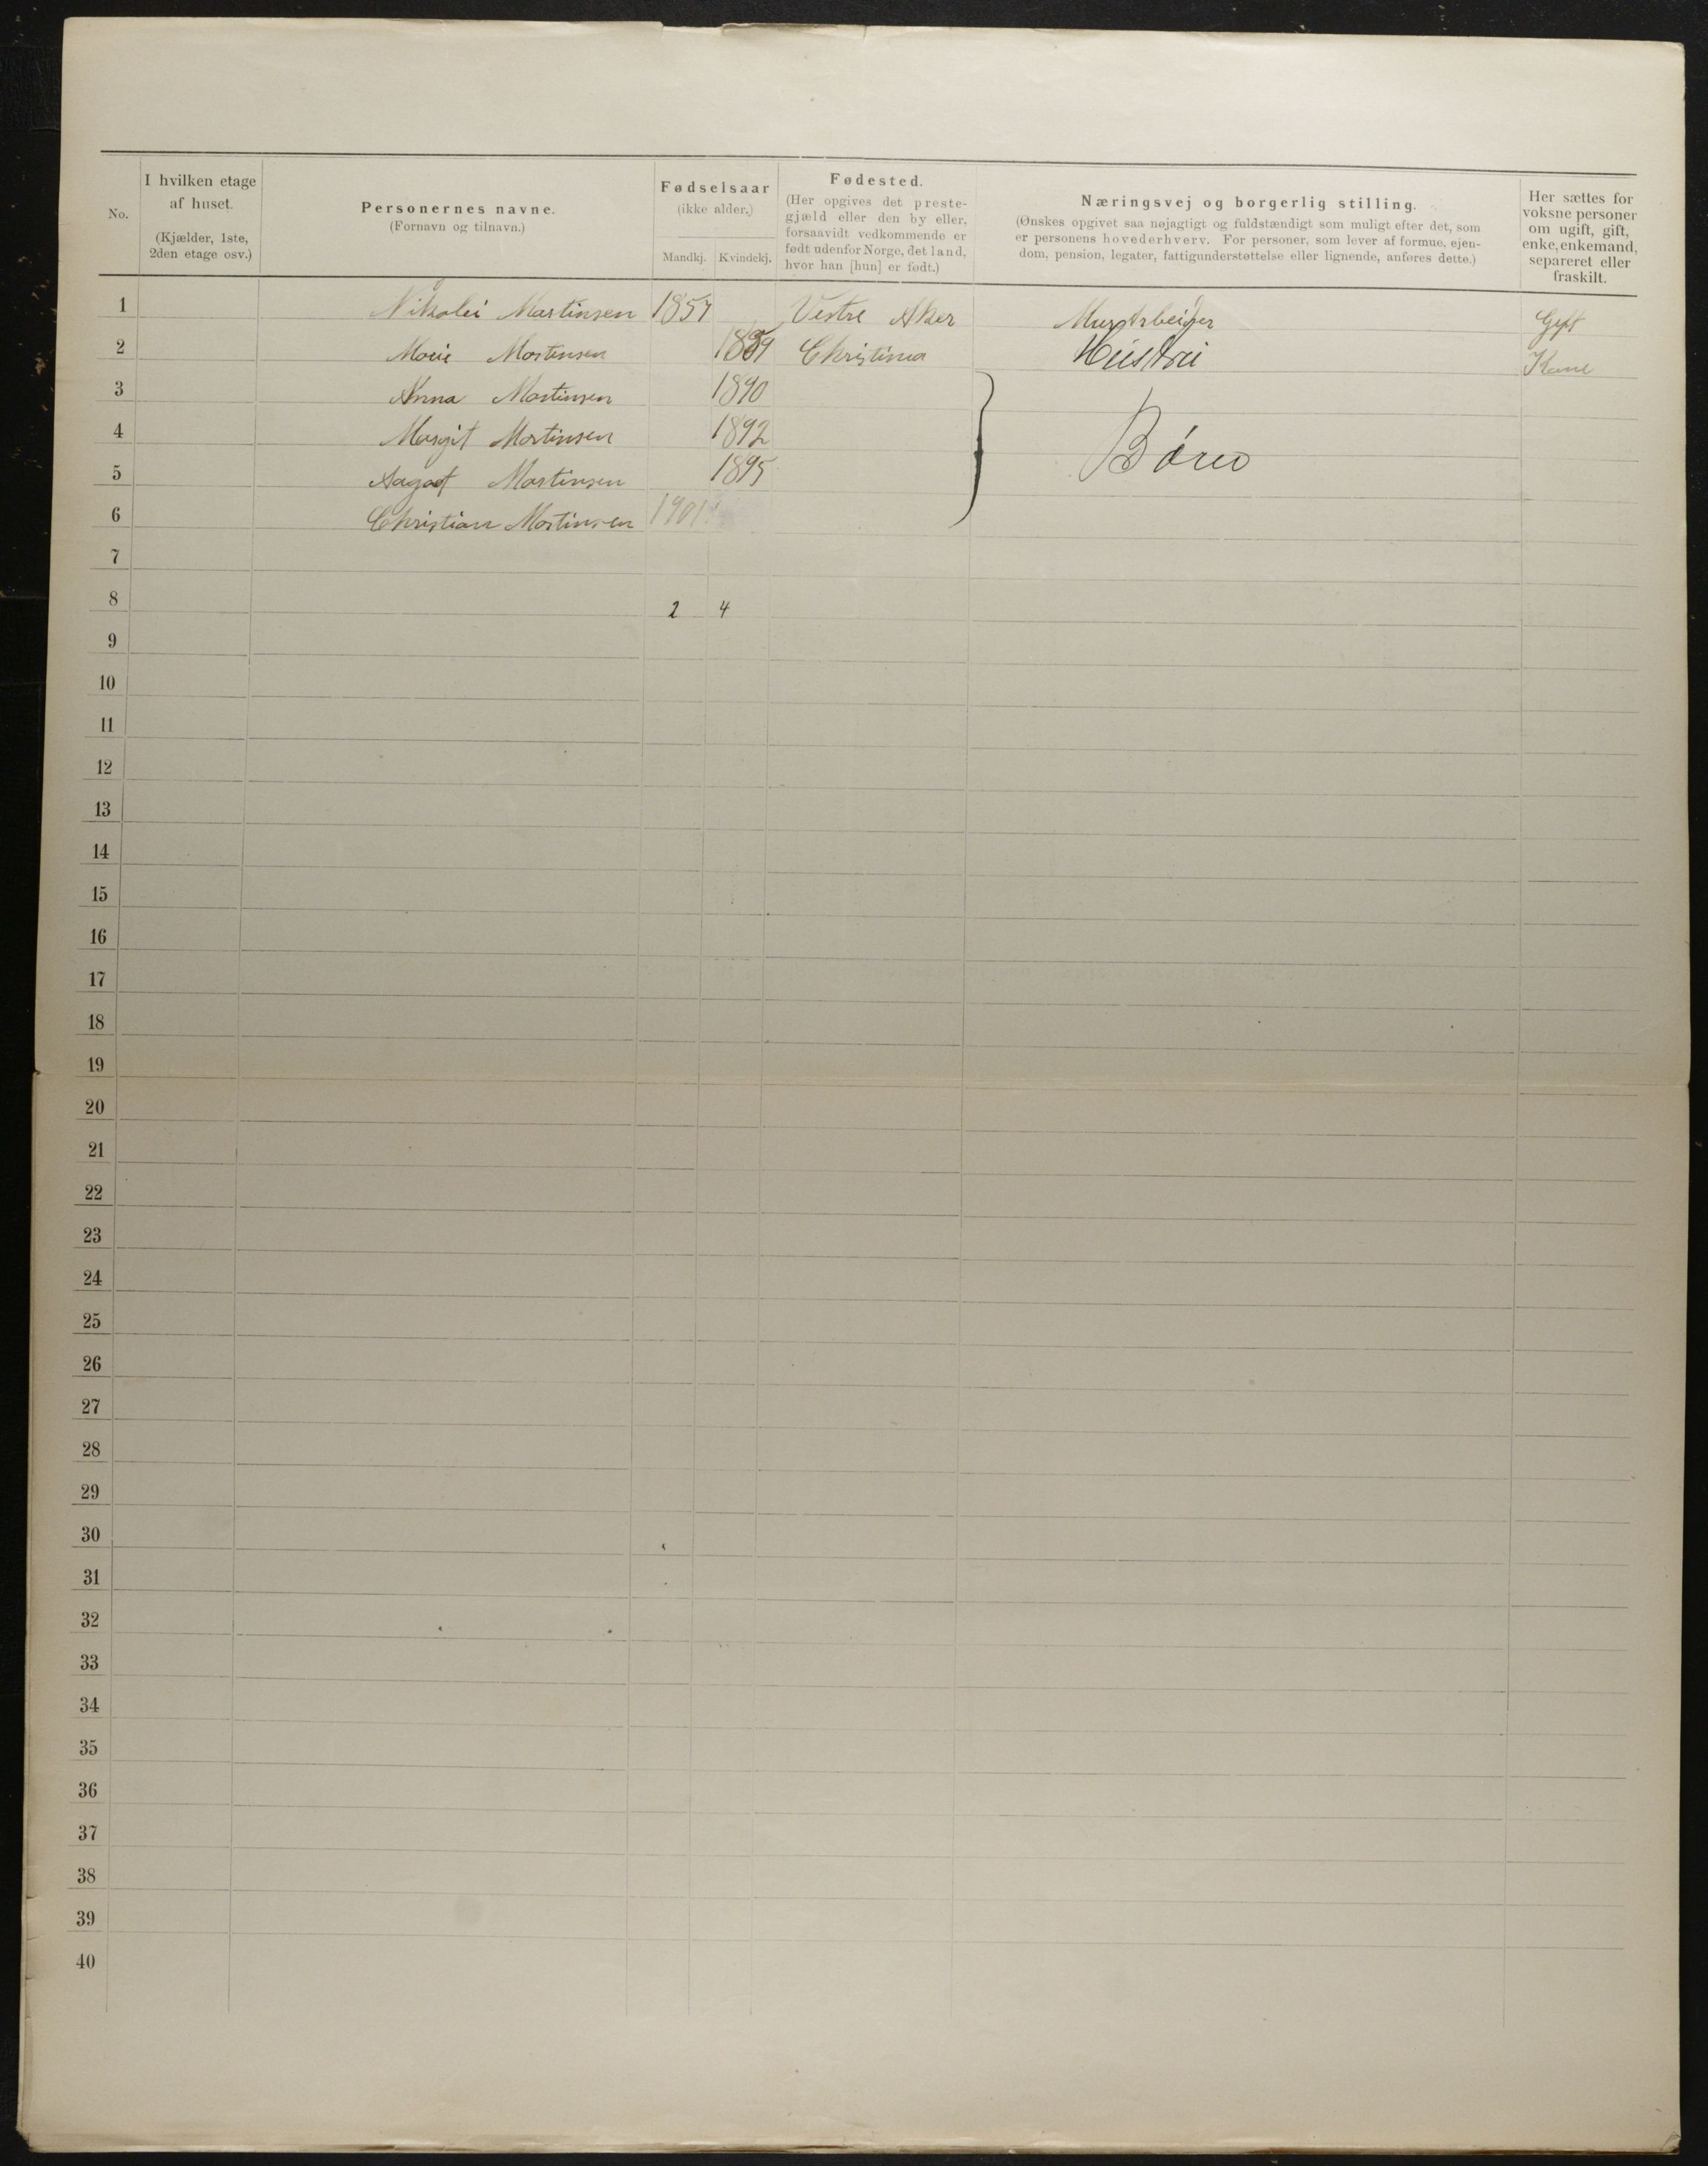 No.
I hvilken etage af huset. (Kjælder, 1ste, 2den etage osv.)
Personernes navne. (Fornavn og tilnavn.)
Fødselsaar (ikke alder.)
Mandkj. Kvindekj.
Fødested.
(Her opgives det preste-
gjæld eller den by eller,
forsaavidt vedkommende er
født udenfor Norge, det land,
hvor han [hun] er født.)
Næringsvej og borgerlig stilling.
(Ønskes opgivet saa nøjagtigt og fuldstændigt som muligt efter det, som
er personens hovederhverv. For personer, som lever af formue, ejen-
dom, pension, legater, fattigunderstøttelse eller lignende, anføres dette.)
Her sættes for
voksne personer
om ugift, gift,
enke, enkemand,
separeret eller
fraskilt.
1 Nikolei Martinsen 1857 Vestre Aker Gift
2 Marie Martinsen Christinia Hustru Kone
3 Anna Martinsen 1890
4 Margit Martinsen 1892 Børn
5 Martinsen 1895
6 Christian Martinsen 1901
7
8 2 4
9
10
11
12
13
14
15
16
17
18
19
20
21
22
23
24
25
26
27
28
29
30
31
32
33
34
35
36
37
38
39
40